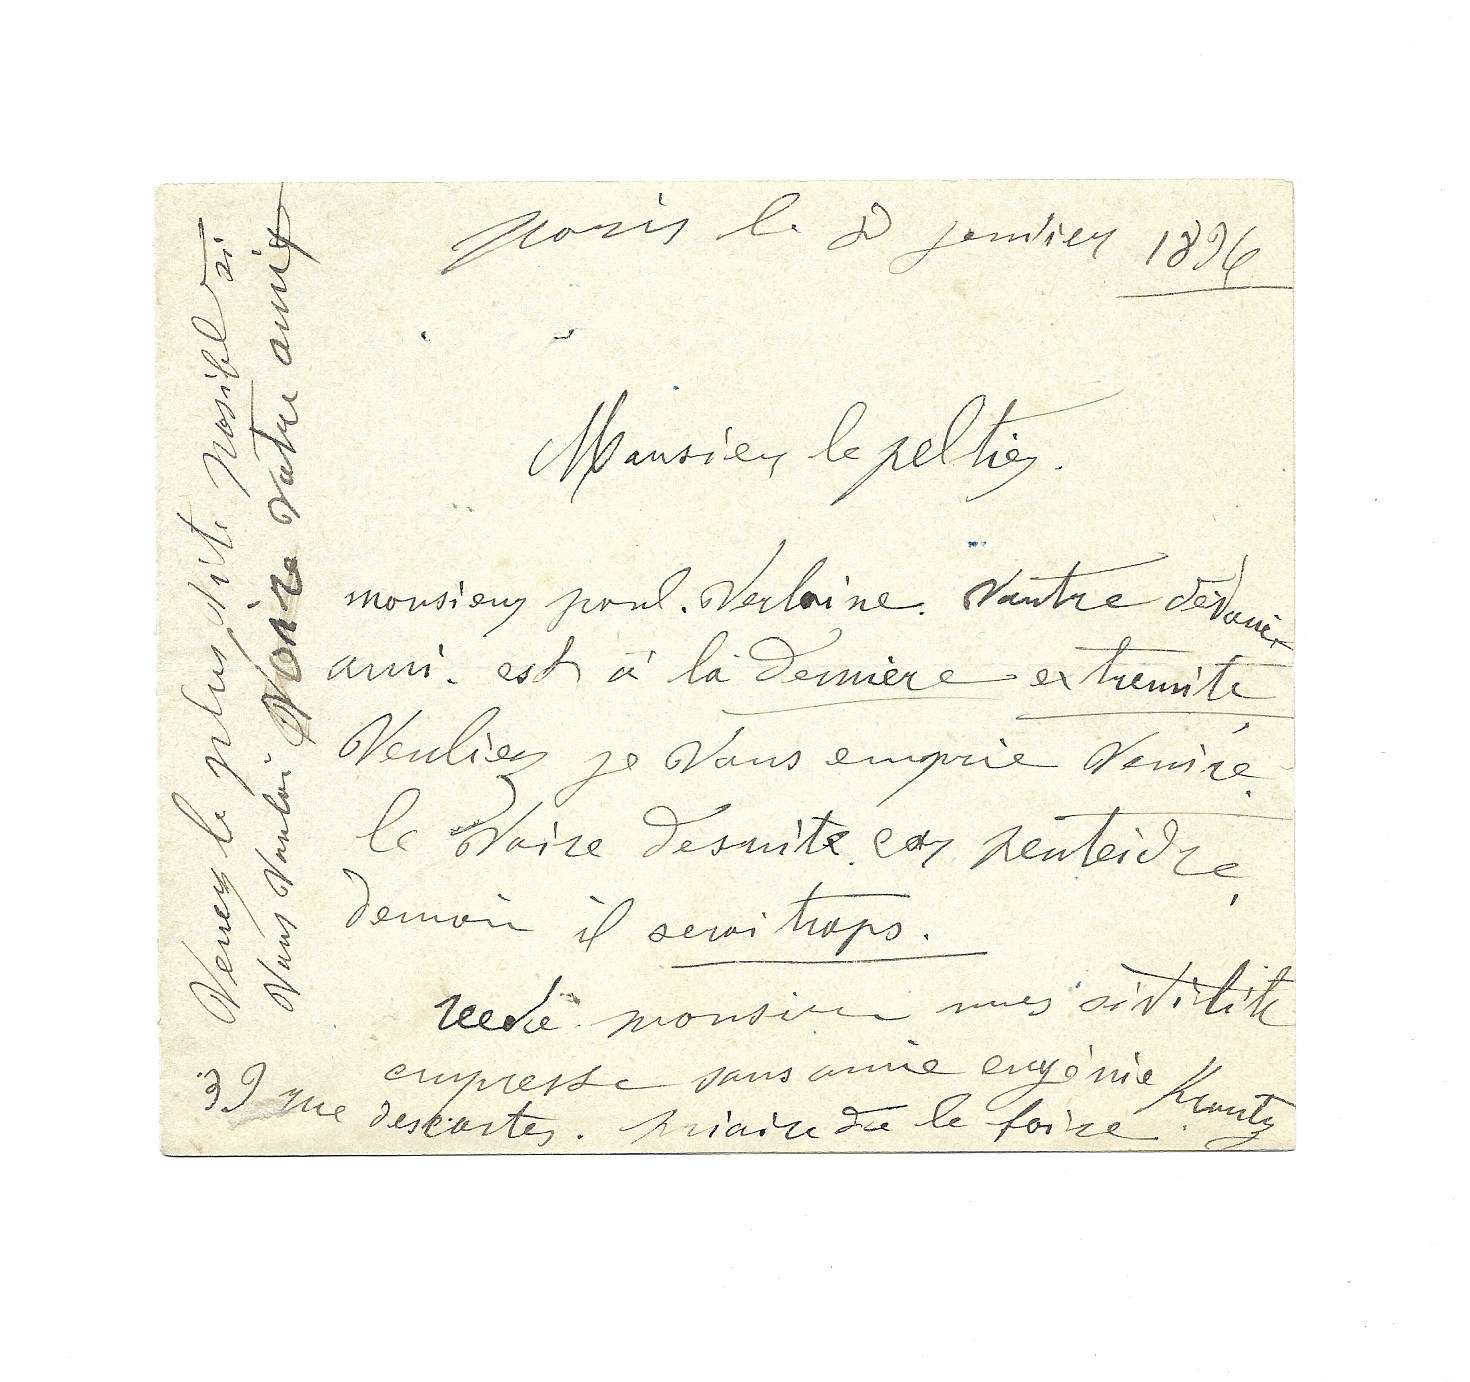 paris le 8 janvier 1896
Monsieur le peltier.
monsieur paul. Verlaine. vautre dévouer
ami. est à la dernière extremité
Veuliez je vous emprie venire
le voire desuite car peuteidre
demain il serai trops.
monsieur mes sivilite
empresse sans amie eugénie Krantz
39 rue descartes. priaire de le faire
Venez le plus vite possible si
vous voulai voire votre amis